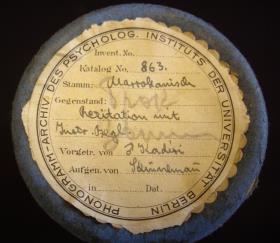 PHONOGRAMM-ARCHIV DES PSYCHOLOG. INSTITUTS DER UNIVERSITÄT BERLIN
Invent. No.
Katalog No. 863.
Stamm: Marrokanisch
Gegenstand:
Rezitation mit
Instr. Begl.
Vorgetr. von
Aufgen. von Schünemann
in Dat.